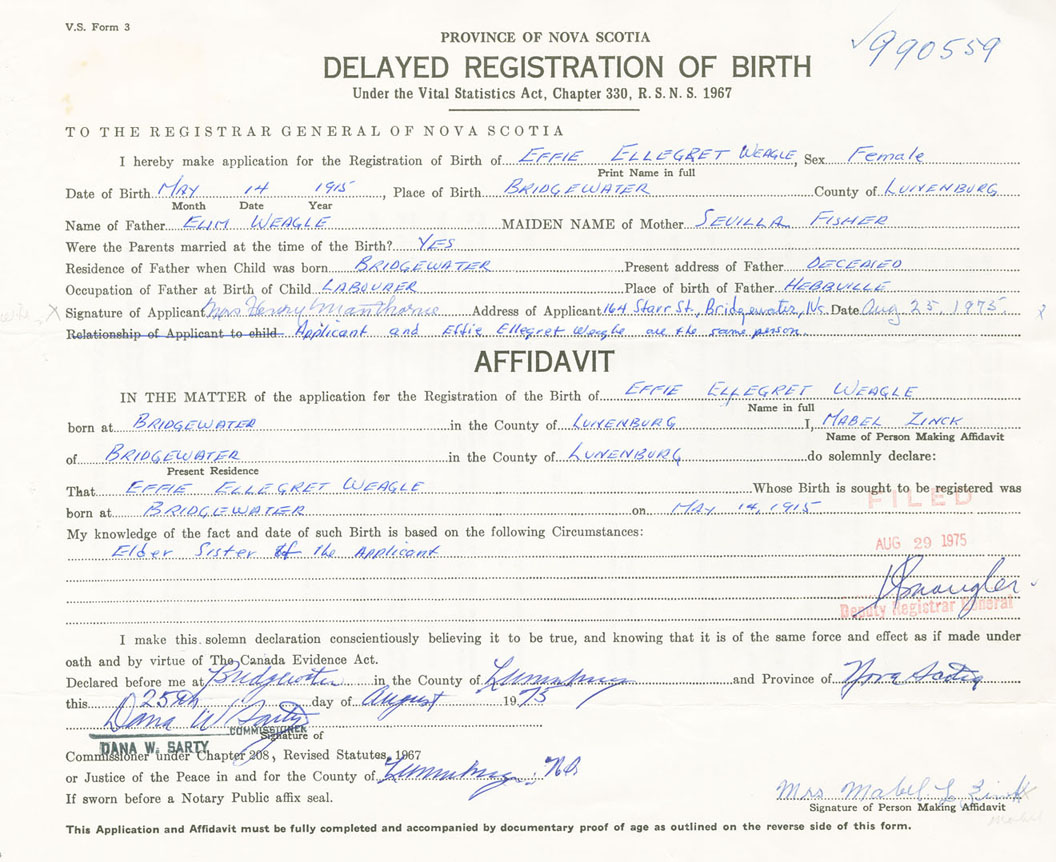 V.S. Form 3
990559
PROVINCE OF NOVA SCOTIA
DELAYED REGISTRATION OF BIRTH
Under the Vital Statistics Act, Chapter 330, R.S.N.S. 1967
TO THE REGISTRAR GENERAL OF NOVA SCOTIA
I hereby make application for the Registration of Birth of EFFIE ELLEGRET WEAGLE, Sex Female
Print Name in full
Date of Birth MAY 14 1915, Place of Birth BRIDGEWATER County of LUNENBURG
Month Date Year
Name of Father ELIM WEAGLE MAIDEN NAME of Mother SEVILLA FISHER
Were the Parents married at the time of the Birth? YES
Residence of Father when Child was born BRIDGEWATER Present address of Father DECEASED
Occupation of Father at Birth of Child LABOURER Place of birth of Father HEBBVILLE
X Signature of Applicant Mrs Henry Manthorne Address of Applicant 164 Starr St., Bridgewater, N.S. Date Aug 25, 1975.
Relationship of Applicant to child Applicant and Effie Ellegret Weagle are the same person
AFFIDAVIT
IN THE MATTER of the application for the Registration of the Birth of EFFIE ELLEGRET WEAGLE
Name in full
born at BRIDGEWATER in the County of LUNENBURG I, MABEL ZINCK
Name of Person Making Affidavit
of BRIDGEWATER in the County of LUNENBURG do solemnly declare:
Present Residence
That EFFIE ELLEGRET WEAGLE Whose Birth is sought to be registered was
FILED
born at BRIDGEWATER on MAY 14, 1915
My knowledge of the fact and date of such Birth is based on the following Circumstances:
AUG 29 1975
Elder Sister of the Applicant
Deputy Registrar General
I make this solemn declaration conscientiously believing it to be true, and knowing that it is of the same force and effect as if made under
oath and by virtue of The Canada Evidence Act.
Declared before me at Bridgewater in the County of Lunenburg and Province of Nova Scotia
this 25th day of August 1975
Dana W Sarty
COMMISSIONER
Signature of
DANA W. SARTY
Commissioner under Chapter 208, Revised Statutes, 1967
or Justice of the Peace in and for the County of Lunenburg, N.S.
If sworn before a Notary Public affix seal.
Mrs. Mabel L. Zinck
Signature of Person Making Affidavit
This Application and Affidavit must be fully completed and accompanied by documentary proof of age as outlined on the reverse side of this form.